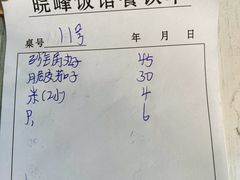 晓峰饭店餐饮单
桌号 11号 年 月 日
砂锅居丸子 45
脆皮茄子 30
米(2小) 4
6